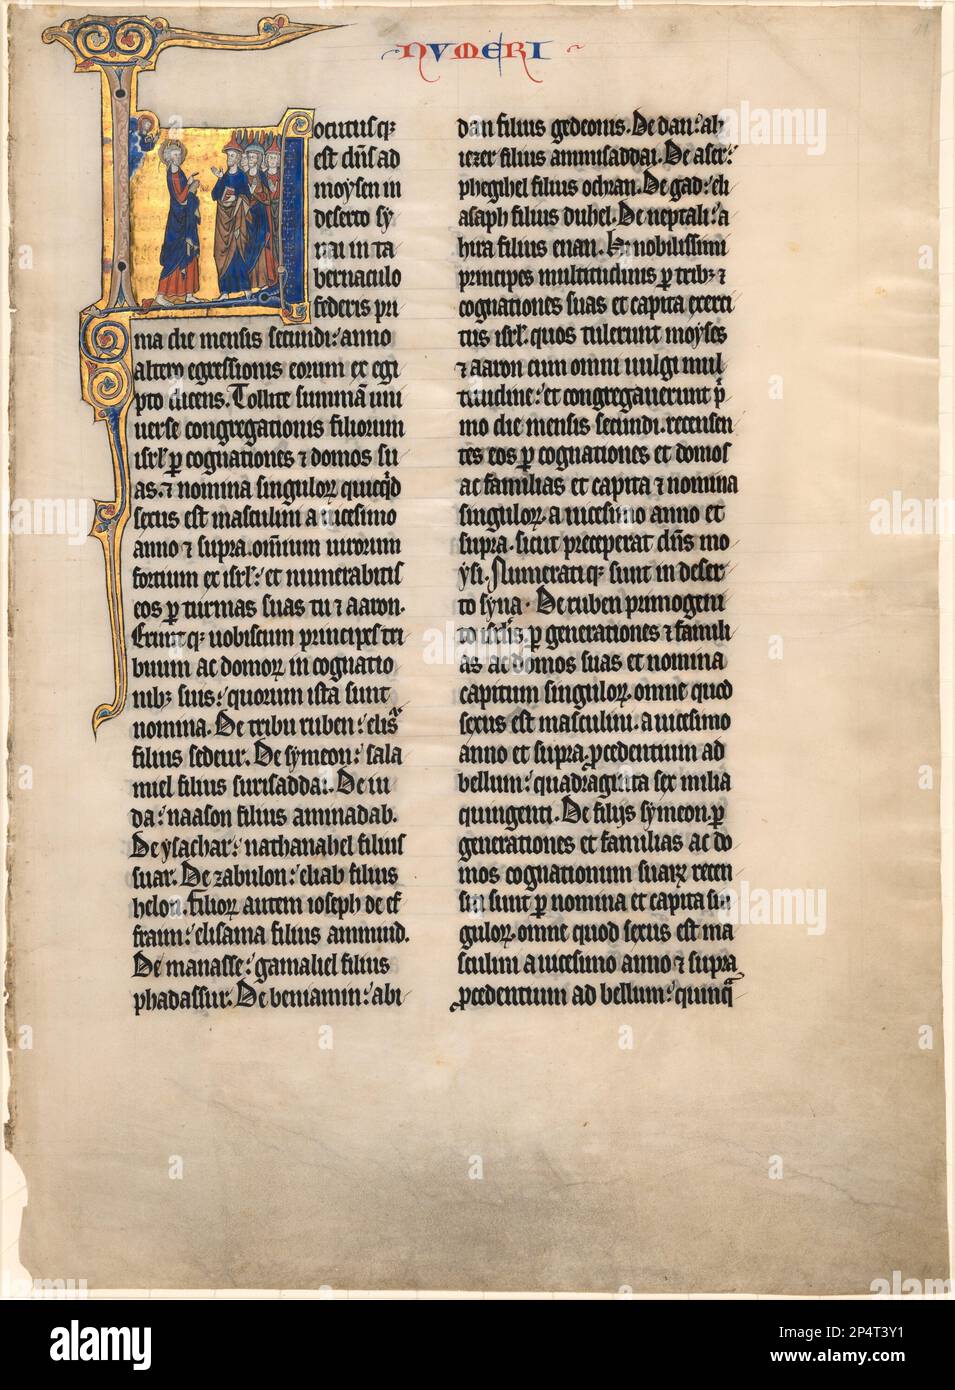 NVMERI
Locutusq;
est dñs ad
moysen in
deserto sy
nai in ta
bernaculo
federis pri
ma die mensis secundi: anno
altero egressionis eorum ex egi
pto dicens. Tollite summā uni
uerse congregationis filiorum
isrl' p cognationes ⁊ domos su
as. ⁊ nomina singuloꝝ quicq̇d
sexus est masculini a uicesimo
anno ⁊ supra. om̄ium uirorum
fortium ex isrl': et numerabitis
eos p turmas suas tu ⁊ aaron.
Eruntq; uobiscum principes tri
buum ac domoꝝ in cognatio
nib; suis: quorum ista sunt
nomina. De tribu ruben: elisᵃ
filius sedeur. De symeon: sala
miel filius surisaddai. De iu
da: naason filius aminadab.
De ysachar: nathanahel filius
suar. De zabulon: eliab filius
helon. filioꝝ autem ioseph de ef
fraim: elisama filius ammiud.
De manasse: gamaliel filius
phadassur. De beniamin: abi
dan filius gedeonis. De dan: ab
iezer filius amisaddai. De aser:
phegihel filius ochran. De gad: eli
asaph filius duhel. De neptali: a
hira filius enan. Hi nobilissimi
principes multitudinis p trib; ⁊
cognationes suas et capita exerci
tus isrl'. quos tulerunt moyses
⁊ aaron cum omni uulgi mul
titudine: et congregauerunt p̄
mo die mensis secundi. recensen
tes eos p cognationes et domos
ac familias et capita ⁊ nomina
singuloꝝ. a uicesimo anno et
supra. sicut preceperat dñs mo
ysi. Numeratiq; sunt in deser
to syna. De ruben primogeni
to isrl'is p generationes ⁊ famili
as ac domos suas et nomina
capitum singuloꝝ. omne quod
sexus est masculini. a uicesimo
anno et supra. pcedentium ad
bellum: quadraginta sex milia
quingenti. De filijs symeon. p
generationes et familias ac do
mos cognationum suaꝝ recen
siti sunt p nomina et capita sin
guloꝝ. omne quod sexus est ma
sculini a uicesimo anno ⁊ supra
pcedentium ad bellum: quinqᵃ
alamy
Image ID: 2P4T3Y1
www.alamy.com